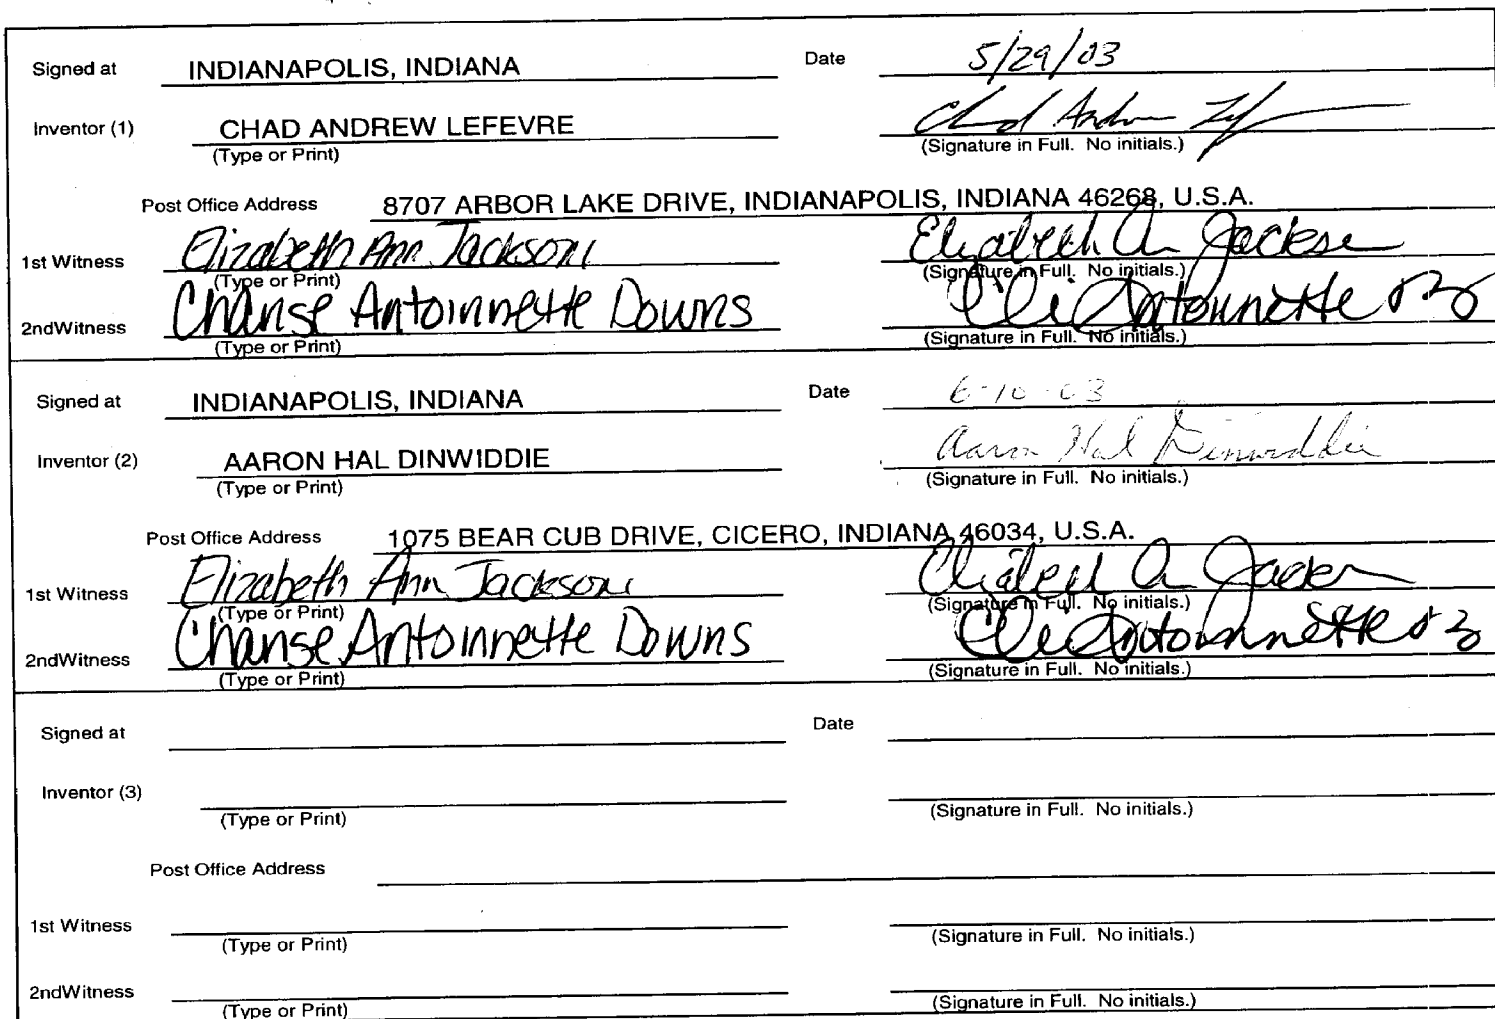 Signed at INDIANAPOLIS, INDIANA Date 5/29/03
Inventor (1) CHAD ANDREW LEFEVRE Chad Andrew
(Type or Print) (Signature in Full. No initials.)
Post Office Address 8707 ARBOR LAKE DRIVE, INDIANAPOLIS, INDIANA 46268, U.S.A.
1st Witness Elizabeth Ann Jackson Elizabeth A Jackson
(Type or Print) (Signature in Full. No initials.)
2ndWitness Chanse Antoinnette Downs Antoinnette
(Type or Print) (Signature in Full. No initials.)
Signed at INDIANAPOLIS, INDIANA Date 6-10-03
Inventor (2) AARON HAL DINWIDDIE Aaron Hal Dinwiddie
(Type or Print) (Signature in Full. No initials.)
Post Office Address 1075 BEAR CUB DRIVE, CICERO, INDIANA 46034, U.S.A.
1st Witness Elizabeth Ann Jackson Elizabeth A Jackson
(Type or Print) (Signature in Full. No initials.)
2ndWitness Chanse Antoinnette Downs Antoinnette
(Type or Print) (Signature in Full. No initials.)
Signed at Date
Inventor (3)
(Type or Print) (Signature in Full. No initials.)
Post Office Address
1st Witness
(Type or Print) (Signature in Full. No initials.)
2ndWitness
(Type or Print) (Signature in Full. No initials.)